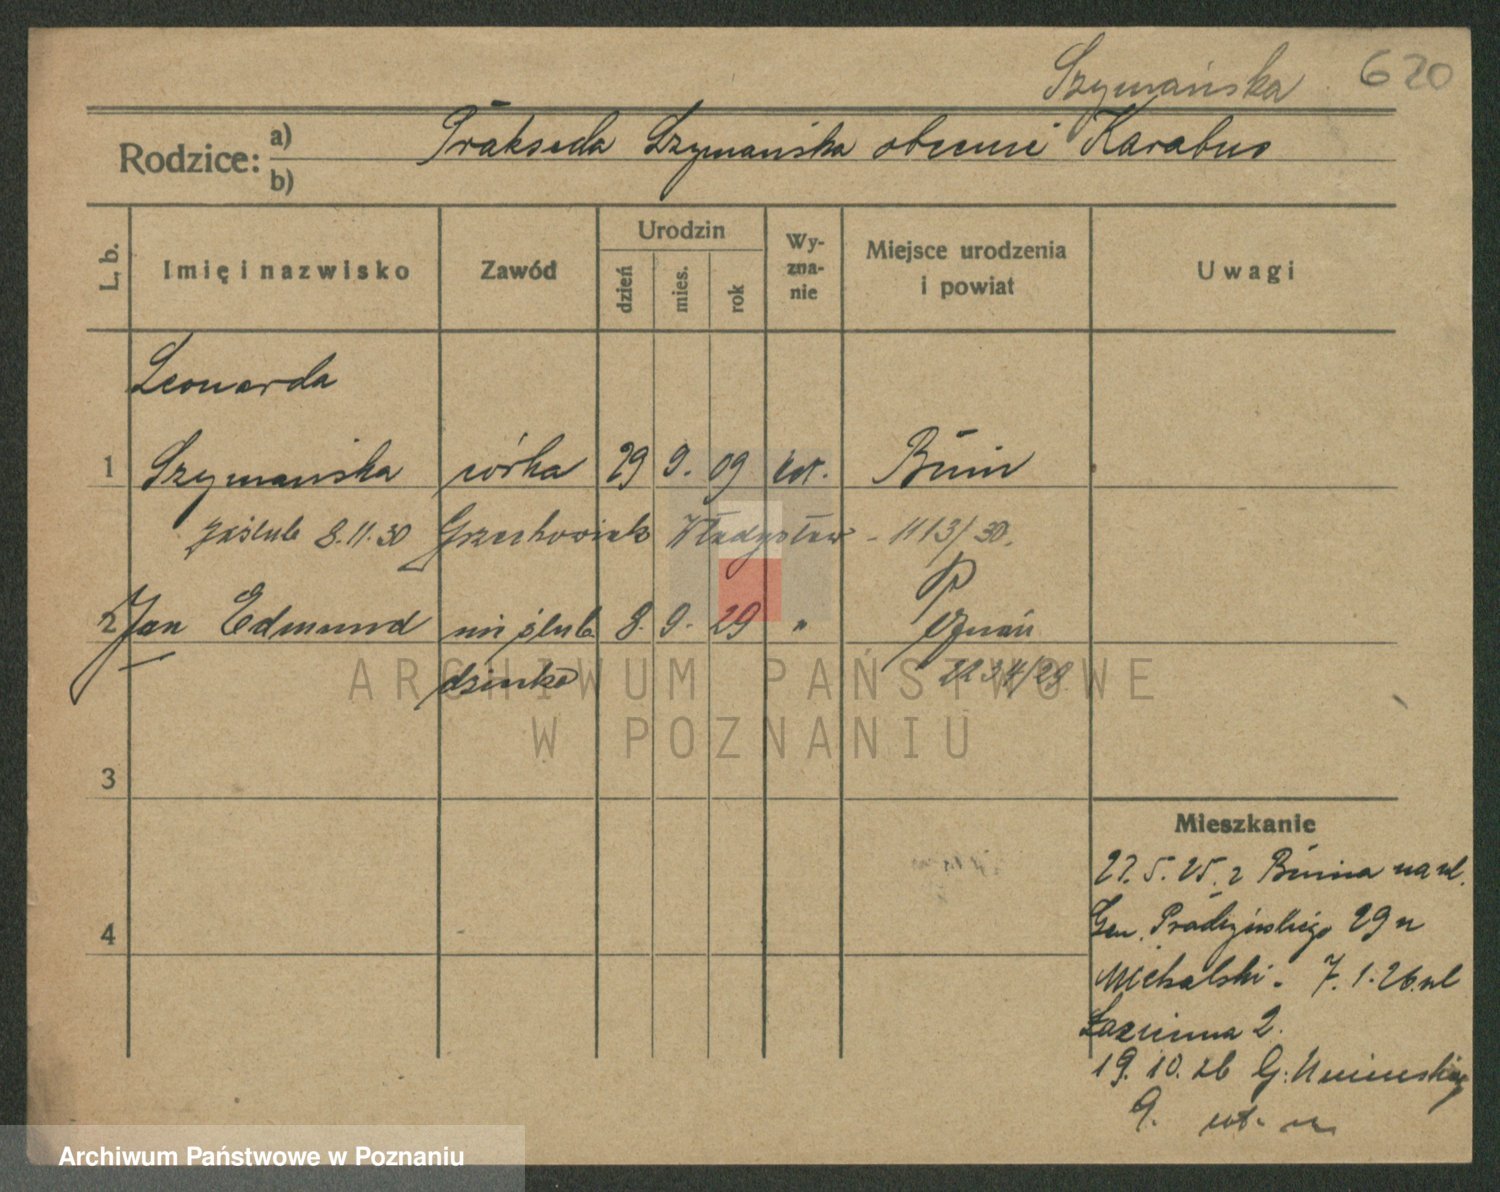 Szymańska 620
Rodzice: a) Prakseda Szymańska obecnie Karabus
b)
L. b. Imię i nazwisko Zawód Urodzin dzień mies. rok Wyzna-nie Miejsce urodzenia i powiat Uwagi
Leonarda
1 Szymańska córka 29 9. 09 kat. Bnin
zaślub 8.11.30 Grzechowiak Władysław - 1113/30.
2 Jan Edmund nieślub. 8. 9. 29 " Poznań
dziecko 2234/29
3
Mieszkanie
4
22.5.25. z Bnina na ul.
Gen. Prądzyńskiego 29 u
Michalski. 7.1.26 ul
Łazienna 2.
19.10.26 G: Umińskiego
9.
ARCHIWUM PAŃSTWOWE
W POZNANIU
Archiwum Państwowe w Poznaniu